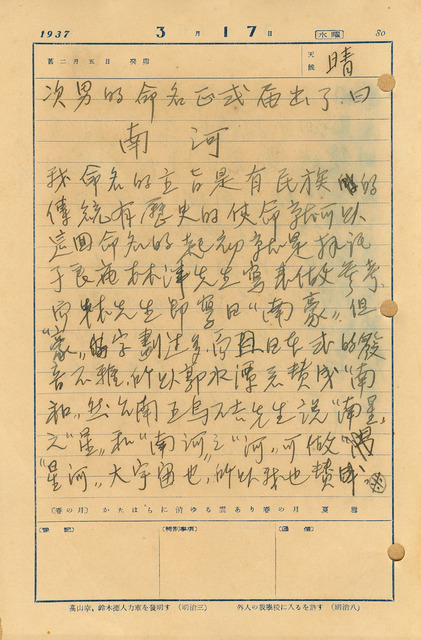 1937 3月17日 水曜 80
舊二月五日 癸卯 天候 晴
次男的命名正式届出了.曰
南河
我命名的主旨是有民族的
傳統有歷史的使命就可以
這回命名的起初就是執託
于良
林
先生寫來做參考
而林先生即覆曰“南豪”,但
“豪”的字劃过多,而且日本式的發
音不雅,所以鄭水潭君賛成“南
和”,然台南王烏不吉先生說“南星”
之“星”和“南河”之“河”可做
“星河”大宇宙也,所以我也賛成.
(春の月) かたはらに消ゆる雲あり春の月 夏
(登記) (特別事項) (通信)
高山幸,鈴木德人力車を發明す (明治三) 外人の我學校に入るを許す (明治八)